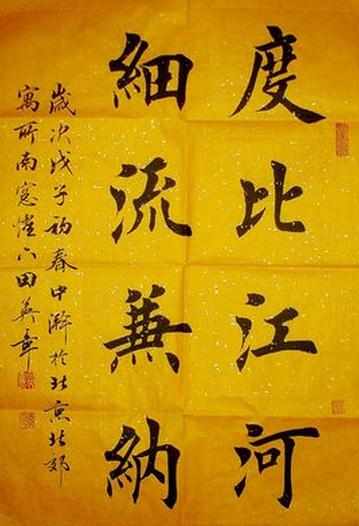 度比江河
細流兼納
歲次戊子初春中澣於北京北郊
寓所南窗燈下田英章